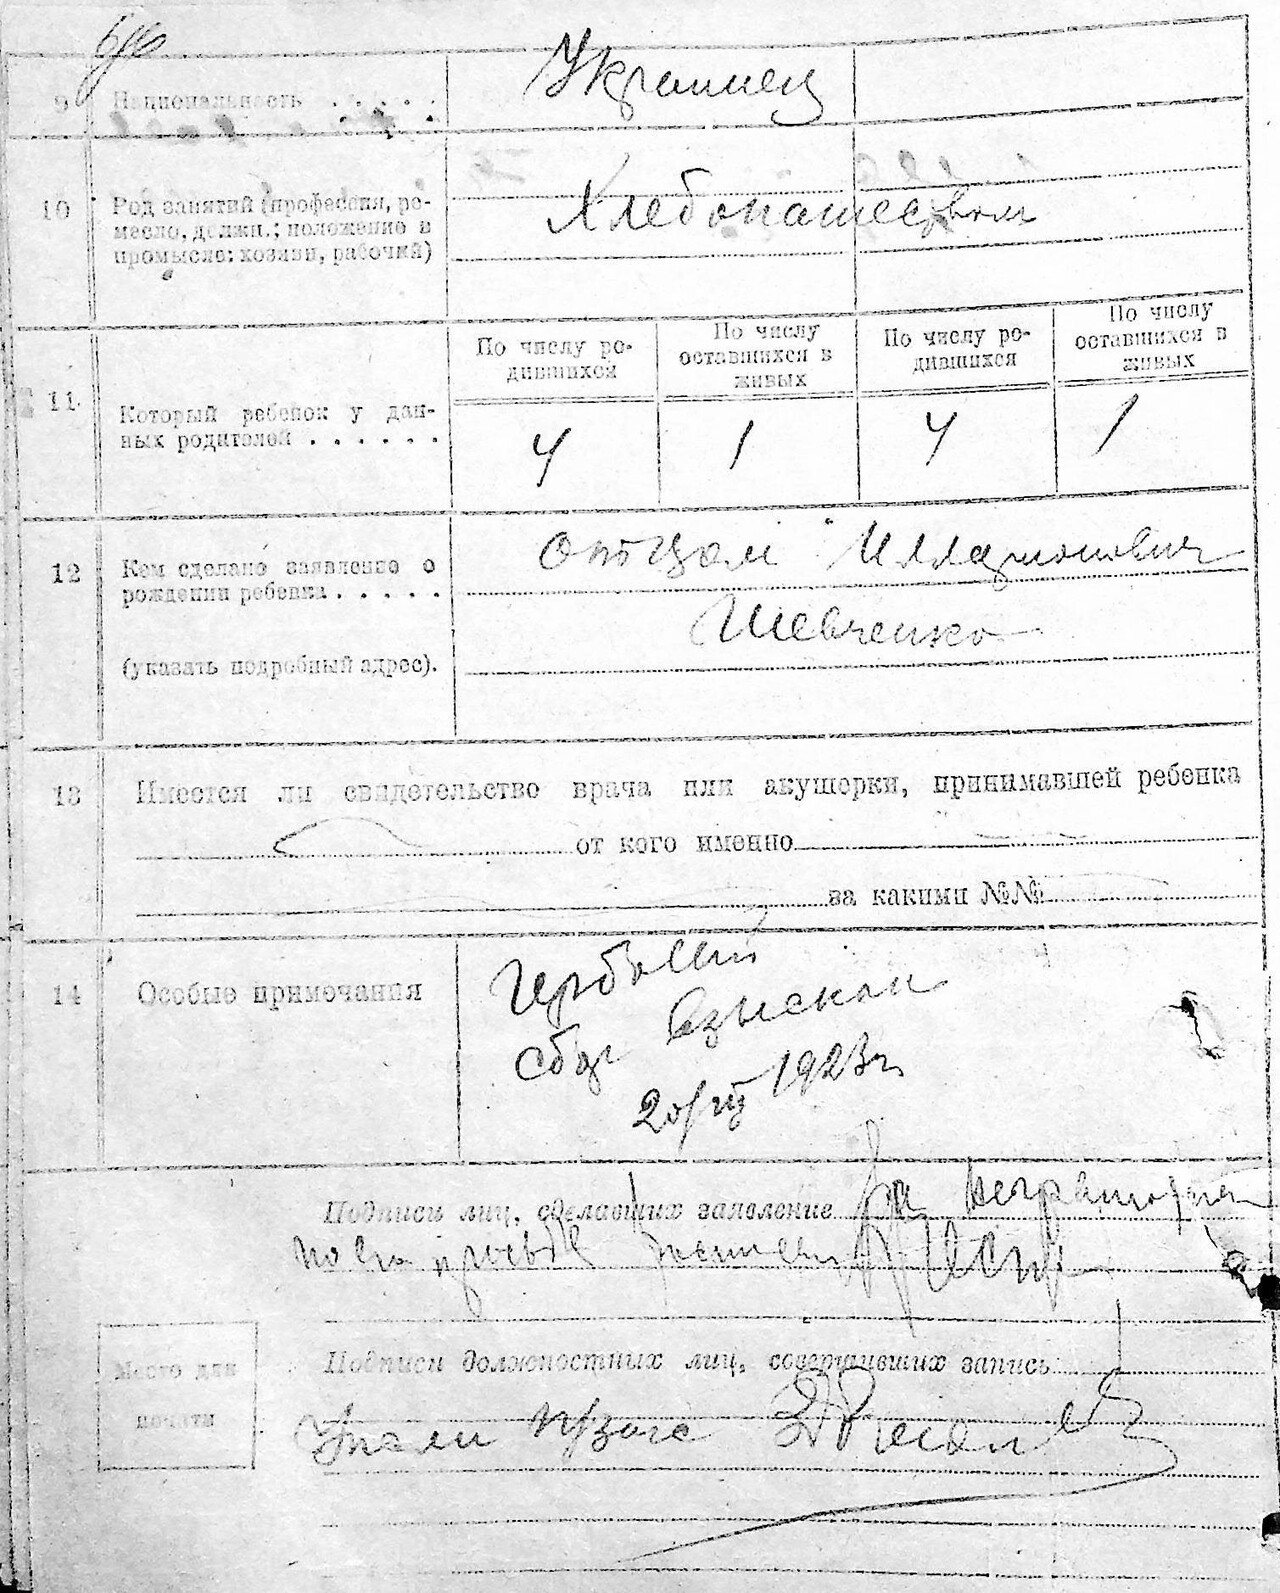 9 Национальность . . . . . Украинец
10 Род занятий (профессия, ре-
месло, должн.; положение в
промысле: хозяин, рабочий)
Хлебопашеством
По числу ро-
дившихся
По числу
оставшихся в
живых
По числу ро-
дившихся
По числу
оставшихся в
живых
11 Который ребенок у дан-
ных родителей . . . . . .
4 1 4 1
12 Кем сделано заявление о
рождении ребенка . . . . .
(указать подробный адрес).
отцом Илларионович
Шевченко
13 Имеется ли свидетельство врача или акушерки, принимавшей ребенка
от кого именно
за какими №№
14 Особые примечания
Гербовый
сбор взыскан
1923г
Подписи лиц, сделавших заявление За неграмотн
по его просьбе
Подписи должностных лиц, совершивших запись
Место для
печати